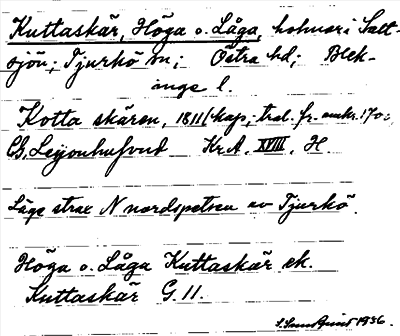 Kuttaskär, Höga o. Låga, holmar i Salt-
sjön; Tjurkö sn; Östra hd; Blek-
inge l.
Kotta skären, 1811 (kap; trol. fr. omkr. 170:,
C.G. Leijonhufvud Kr.A. XVIII. H.
Läge strax N nordspetsen av Tjurkö.
Höga o. Låga Kuttaskär ek.
Kuttaskär G. 11.
1936.